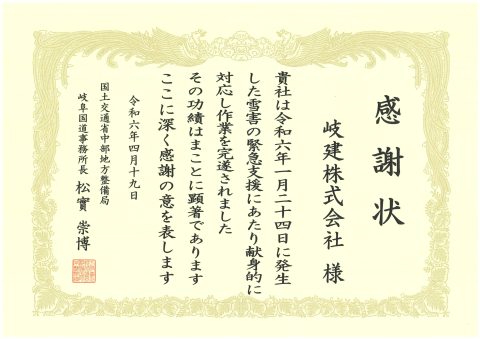 感謝状
岐建株式会社 様
貴社は令和六年一月二十四日に発生
した雪害の緊急支援にあたり献身的に
対応し作業を完遂されました
その功績はまことに顕著であります
ここに深く感謝の意を表します
令和六年四月十九日
国土交通省中部地方整備局
岐阜国道事務所長 松實 崇博